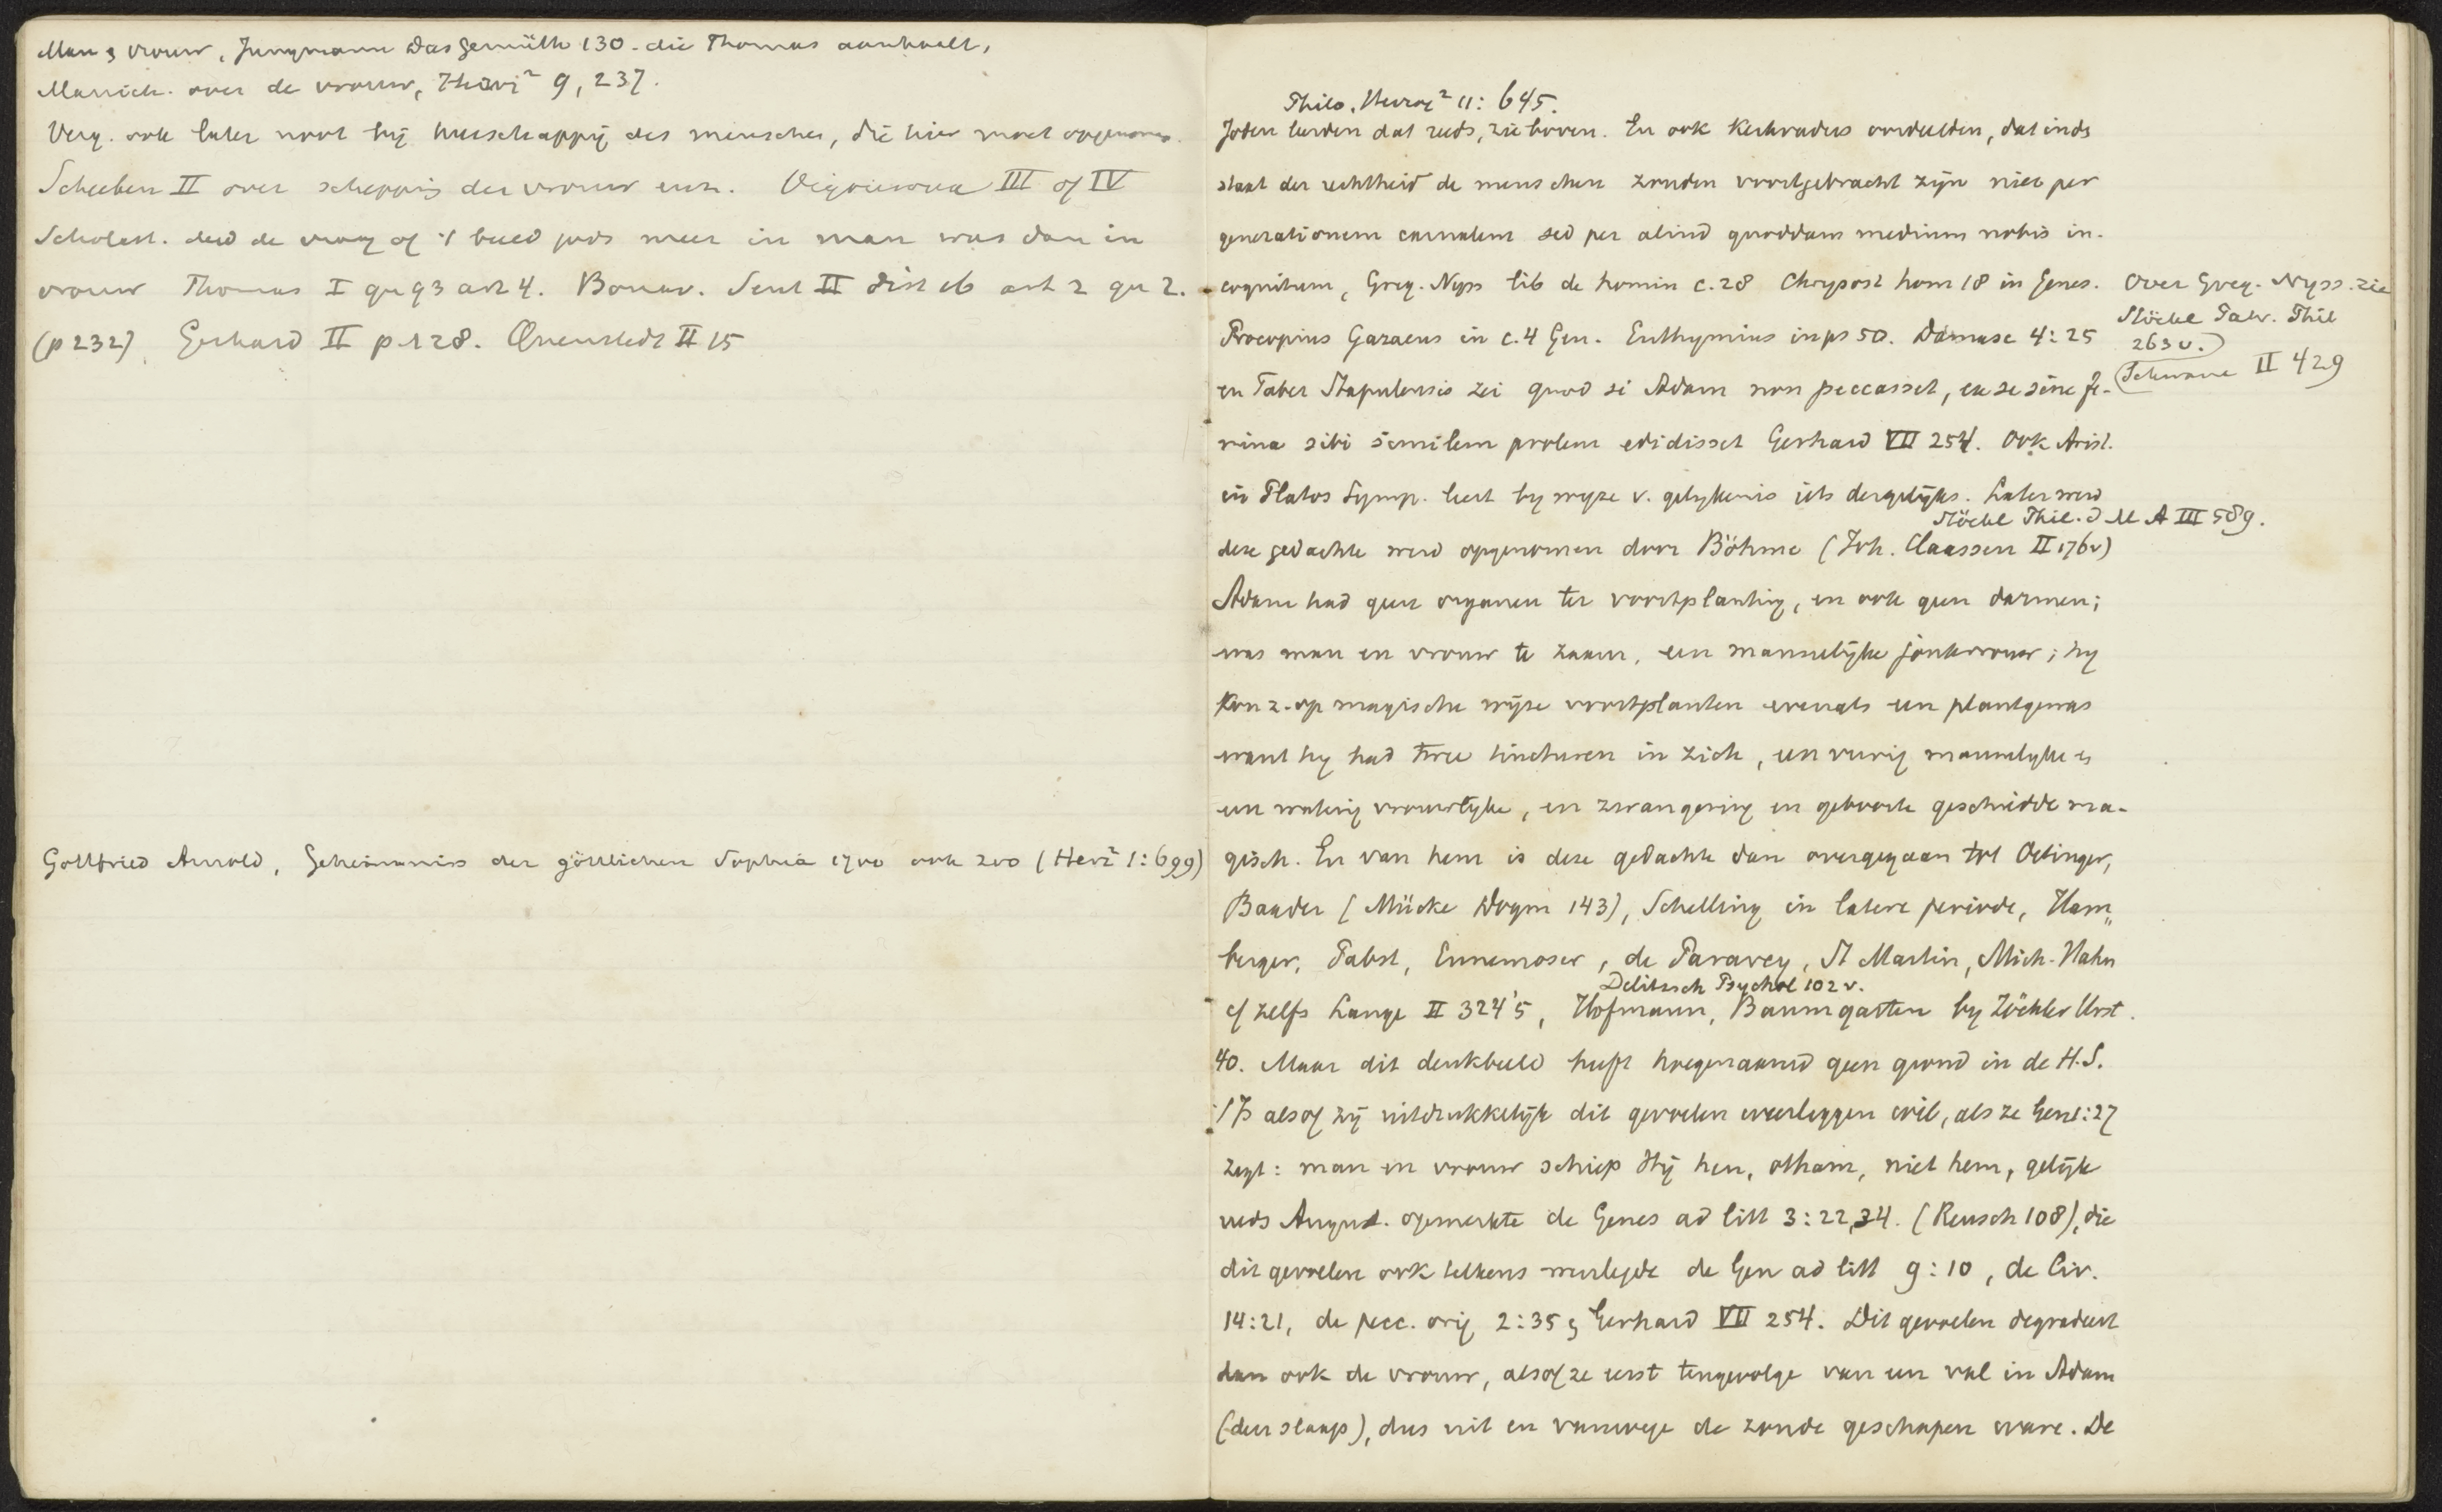 Man & vrouw, Jungmann Das Gemüth 130 - die Thomas aanhaalt,
Manich. over de vrouw, Herzog² 9, 237.
Verg. ook later noot bij heerschappij des menschen, die hier moet opgenomen.
Scheeben II over schepping der vrouw enz. III of IV
Scholast. deed de vraag of 't beeld gods meer in man was dan in
vrouw Thomas I qu 93 art 4. Bonav. Sent II dist 16 art 2 qu 2.
(p 232). Gerhard II p 128. Quenstedt II 15
Gottfried Arnold, Geheimniss der göttlichen Sophia 1700 ook zoo (Herz² 1:699)
Philo, Herzog² 11: 645.
Joden leerden dat reeds, zie boven. En ook Kerkvaders oordeelden, dat in ds
staat der rechtheid de menschen zouden voortgebracht zijn niet per
generationem carnalem sed per aliud quoddam medium nobis in-
cognitum, Greg. Nyss lib de homin c. 28 Chrysost hom 18 in Genes.
Over Greg. Nyss. zie
Stöckl Patr. Phil
263 v.)
(Schwane II 429
Procopius Gazaeus in c. 4 Gen. Euthymius in ps 50. Damasc 4: 25
en Faber Stapulensis zei quod si Adam non peccasset, ex se sine fe-
mina sibi similem prolem edidisset Gerhard VII 254. Ook Arist.
in Platos Symp. leert by wyze v. gelykenis iets dergelijks. Later werd
Stöckl Phil. d M A III 589.
deze gedachte werd opgenomen door Böhme (Joh. Claassen II 176v)
Adam had geen organen ter voortplanting, en ook geen darmen;
was man en vrouw te zaam, een mannelijke jonkvrouw; hy
kon z. op magische wijze voortplanten evenals een plantgewas
want hy had twee tincturen in zich, een vurig mannelyke en
een waterig vrouwelyke, en zwangering en geboorte geschiedde ma-
gisch. En van hem is deze gedachte dan overgegaan tot Oetinger,
Baader (Mücke Dogm 143), Schelling in latere periode, Ham„
berger, Pabst, Ennemoser, de Paravey, St Martin, Mich. Hahn
Delitzsch Psychol 102 v.
cf zelfs Lange II 324'5, Hofmann, Baumgarten by Zöckler Urst.
40. Maar dit denkbeeld heeft hoegenaamd geen grond in de H.S.
't Is alsof zij uitdrukkelijk dit gevoelen weerleggen wil, als ze Gen 1:27
zegt: man en vrouw schiep Hij hen, otham, niet hem, gelijk
reeds August. opmerkte de Genes ad litt 3:22, 34. (Reusch 108), die
dit gevoelen ook telkens weerlegde de Gen ad litt 9:10, de Civ.
14:21, de pecc. orig 2:35 & Gerhard VII 254. Dit gevoelen degradeert
dan ook de vrouw, alsof ze eerst tengevolge van een val in Adam
(den slaap), dus uit en vanwege de zonde geschapen ware. De